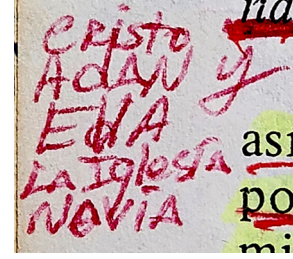 Cristo
ADAN y
EVA
LA Iglesia
NOVIA
así
po